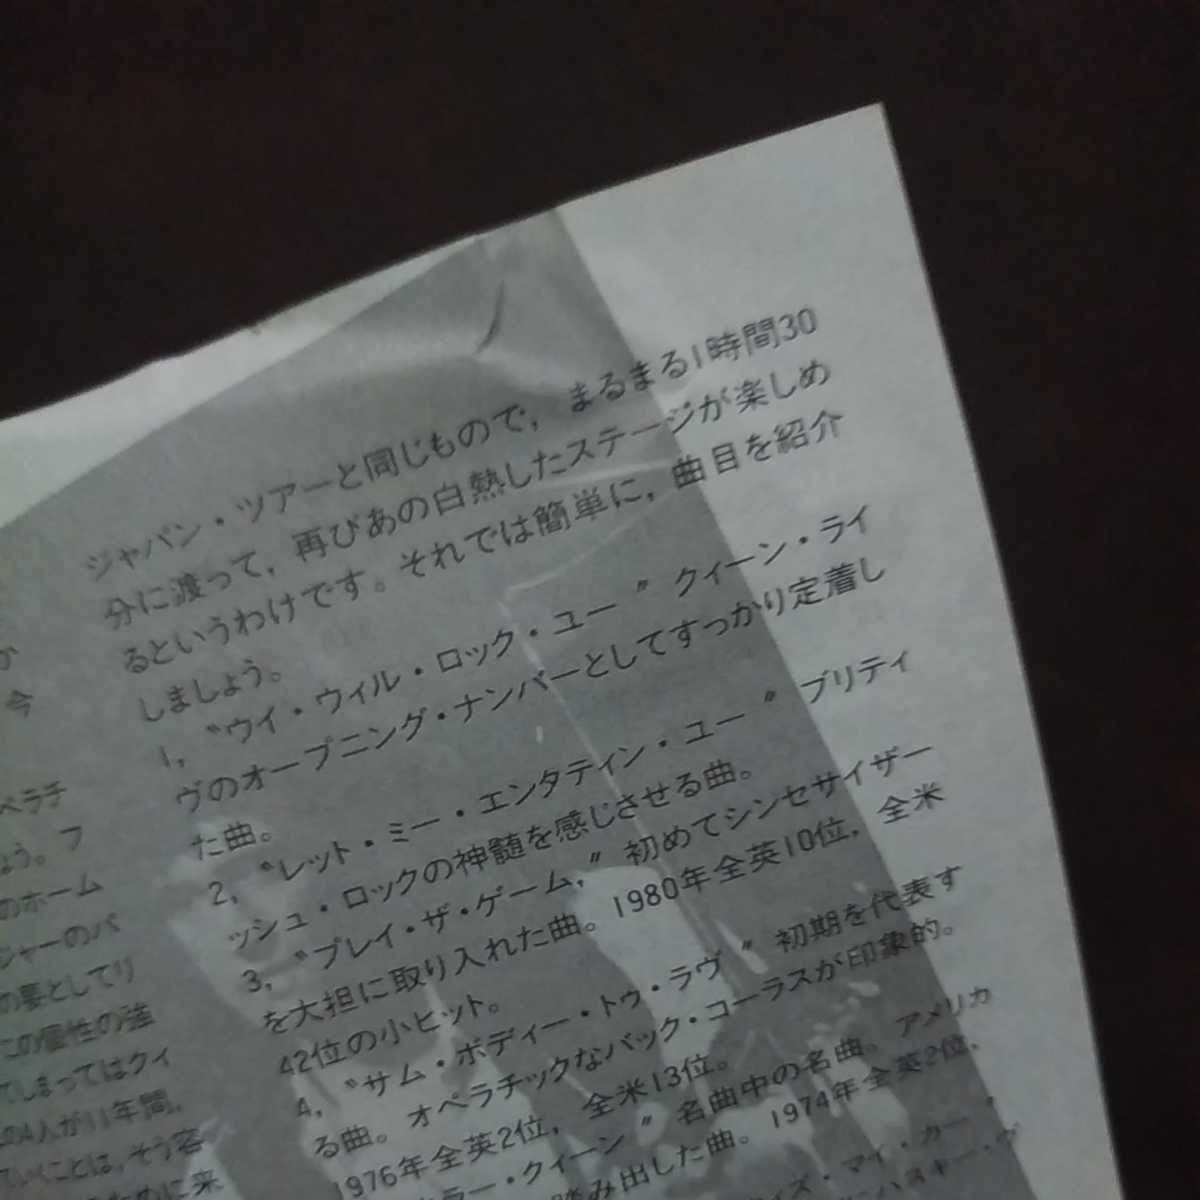 か
今
ペラチ
ょう。フ
のホーム
ジャーのバ
の要としてリ
この個性の強
てしまってはクィ
の4人が11年間,
ていくことは,そう容
ために来
ジャパン・ツアーと同じもので,まるまる1時間30
分に渡って,再びあの白熱したステージが楽しめ
るというわけです。それでは簡単に,曲目を紹介
しましょう。
1,〝ウイ・ウィル・ロック・ユー〟クィーン・ライ
ヴのオープニング・ナンバーとしてすっかり定着し
た曲。
2,〝レット・ミー・エンタティン・ユー〟ブリティ
ッシュ・ロックの神髄を感じさせる曲。
3,〝プレイ・ザ・ゲーム,〟初めてシンセサイザー
を大担に取り入れた曲。1980年全英10位,全米
42位の小ヒット。
4,〝サム・ボディー・トゥ・ラヴ〟初期を代表す
る曲。オペラチックなバック・コーラスが印象的。
1976年全英2位,全米13位。
ラー・クィーン〟名曲中の名曲。アメリカ
踏み出した曲。1974年全英2位,
ィズ・マイ・カー〟
ハスキー・ヴ